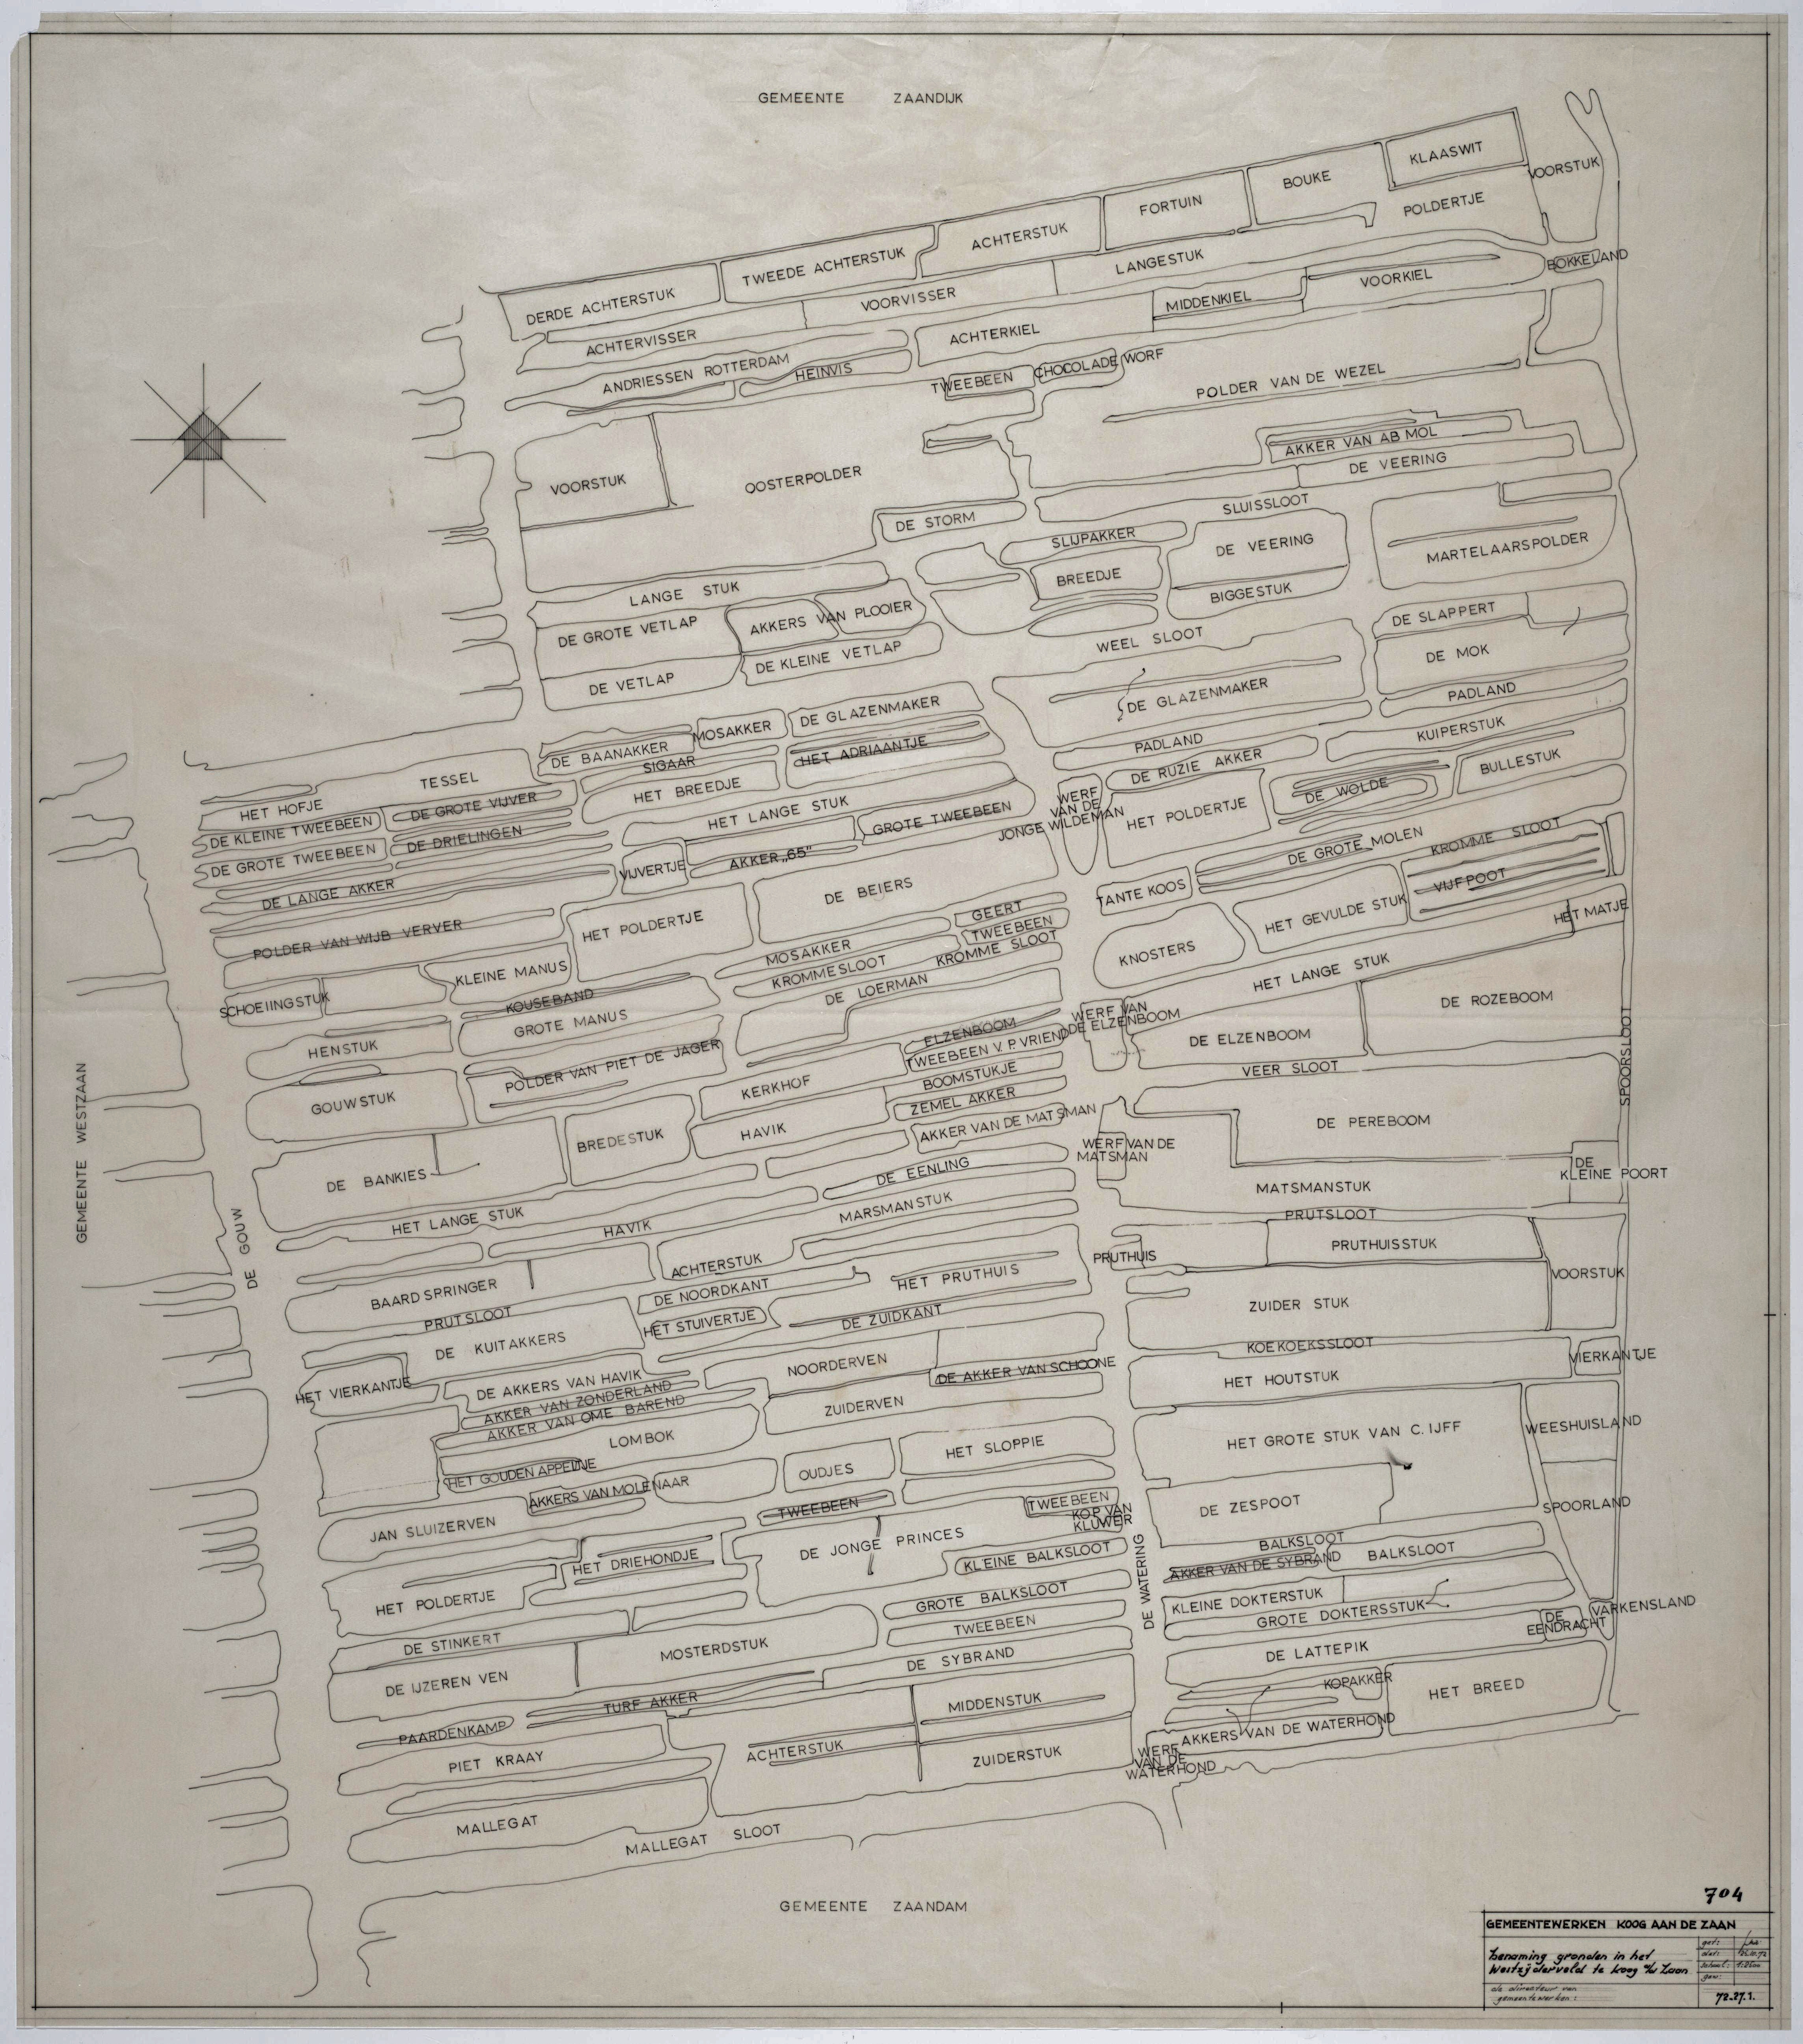 GEMEENTE ZAANDIJK
KLAASWIT
VOORSTUK
BOUKE
FORTUIN
POLDERTJE
ACHTERSTUK
TWEEDE ACHTERSTUK
LANGESTUK
BOKKELAND
DERDE ACHTERSTUK
VOORVISSER
MIDDENKIEL
VOORKIEL
ACHTERVISSER
ACHTERKIEL
ANDRIESSEN ROTTERDAM
HEINVIS
TWEEBEEN
CHOCOLADE WORF
POLDER VAN DE WEZEL
AKKER VAN AB MOL
DE VEERING
VOORSTUK
OOSTERPOLDER
DE STORM
SLUISSLOOT
SLIJPAKKER
DE VEERING
MARTELAARSPOLDER
BREEDJE
BIGGESTUK
LANGE STUK
DE GROTE VETLAP
AKKERS VAN PLOOIER
DE SLAPPERT
WEEL SLOOT
DE MOK
DE VETLAP
DE KLEINE VETLAP
DE GLAZENMAKER
PADLAND
MOSAKKER
DE GLAZENMAKER
DE BAANAKKER
SIGAAR
HET ADRIAANTJE
PADLAND
KUIPERSTUK
DE RUZIE AKKER
BULLESTUK
TESSEL
HET BREEDJE
DE WOLDE
HET HOFJE
DE GROTE VIJVER
HET LANGE STUK
WERF
VAN DE
JONGE WILDEMAN
HET POLDERTJE
DE KLEINE TWEEBEEN
GROTE TWEEBEEN
DE DRIELINGEN
DE GROTE TWEEBEEN
DE GROTE MOLEN
KROMME SLOOT
VIJVERTJE
AKKER „65"
DE LANGE AKKER
DE BEIERS
TANTE KOOS
VIJFPOOT
HET GEVULDE STUK
HET MATJE
POLDER VAN WIJB VERVER
HET POLDERTJE
GEERT
TWEEBEEN
MOSAKKER
KROMME SLOOT
KNOSTERS
KLEINE MANUS
KROMMESLOOT
HET LANGE STUK
SCHOEIINGSTUK
KOUSEBAND
DE LOERMAN
DE ROZEBOOM
GROTE MANUS
WERF VAN
DE ELZENBOOM
ELZENBOOM
HENSTUK
TWEEBEEN V. P. VRIEND
DE ELZENBOOM
SPOORSLOOT
POLDER VAN PIET DE JAGER
BOOMSTUKJE
VEER SLOOT
GOUWSTUK
KERKHOF
ZEMEL AKKER
GEMEENTE WESTZAAN
BREDESTUK
HAVIK
AKKER VAN DE MATSMAN
DE PEREBOOM
WERF VAN DE
MATSMAN
DE BANKIES
DE EENLING
DE
KLEINE POORT
MATSMANSTUK
MARSMANSTUK
HET LANGE STUK
HAVIK
PRUTSLOOT
DE GOUW
ACHTERSTUK
PRUTHUIS
PRUTHUISSTUK
BAARDSPRINGER
DE NOORDKANT
HET PRUTHUIS
VOORSTUK
PRUTSLOOT
HET STUIVERTJE
DE ZUIDKANT
ZUIDER STUK
DE KUITAKKERS
KOEKOEKSSLOOT
VIERKANTJE
NOORDERVEN
DE AKKER VAN SCHOONE
HET HOUTSTUK
HET VIERKANTJE
DE AKKERS VAN HAVIK
AKKER VAN ZONDERLAND
AKKER VAN OME BAREND
ZUIDERVEN
WEESHUISLAND
LOMBOK
HET SLOPPIE
HET GROTE STUK VAN C. IJFF
HET GOUDEN APPELTJE
OUDJES
AKKERS VAN MOLENAAR
TWEEBEEN
TWEEBEEN
KOP VAN
KLUWER
DE ZESPOOT
SPOORLAND
JAN SLUIZERVEN
DE JONGE PRINCES
BALKSLOOT
HET DRIEHONDJE
KLEINE BALKSLOOT
DE WATERING
AKKER VAN DE SYBRAND
BALKSLOOT
HET POLDERTJE
GROTE BALKSLOOT
KLEINE DOKTERSTUK
VARKENSLAND
GROTE DOKTERSSTUK
DE
EENDRACHT
TWEEBEEN
DE STINKERT
MOSTERDSTUK
DE LATTEPIK
DE SYBRAND
DE IJZEREN VEN
KOPAKKER
HET BREED
TURF AKKER
MIDDENSTUK
PAARDENKAMP
AKKERS VAN DE WATERHOND
PIET KRAAY
ACHTERSTUK
ZUIDERSTUK
WERF
VAN DE
WATERHOND
MALLEGAT
MALLEGAT SLOOT
GEMEENTE ZAANDAM
704
GEMEENTEWERKEN KOOG AAN DE ZAAN
benaming gronden in het
Westzijderveld te Koog a/d Zaan
get:
dat:
schaal:
gew:
de directeur van
gemeentewerken:
72.27.1.